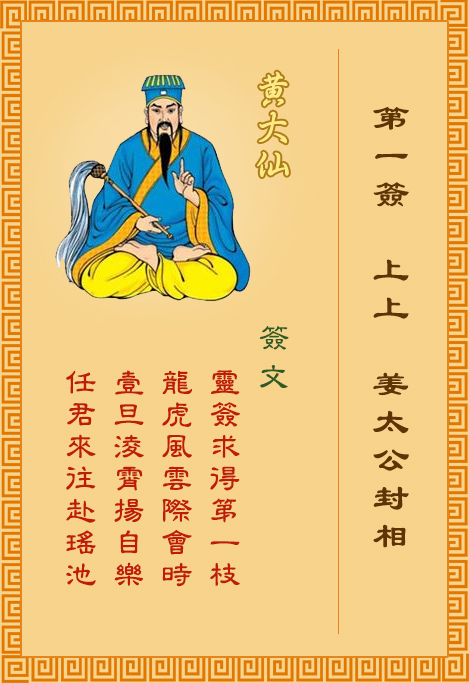 第一簽 上上 姜太公封相
黃大仙
簽文
靈簽求得第一枝
龍虎風雲際會時
壹旦淩霄揚自樂
任君來往赴瑤池